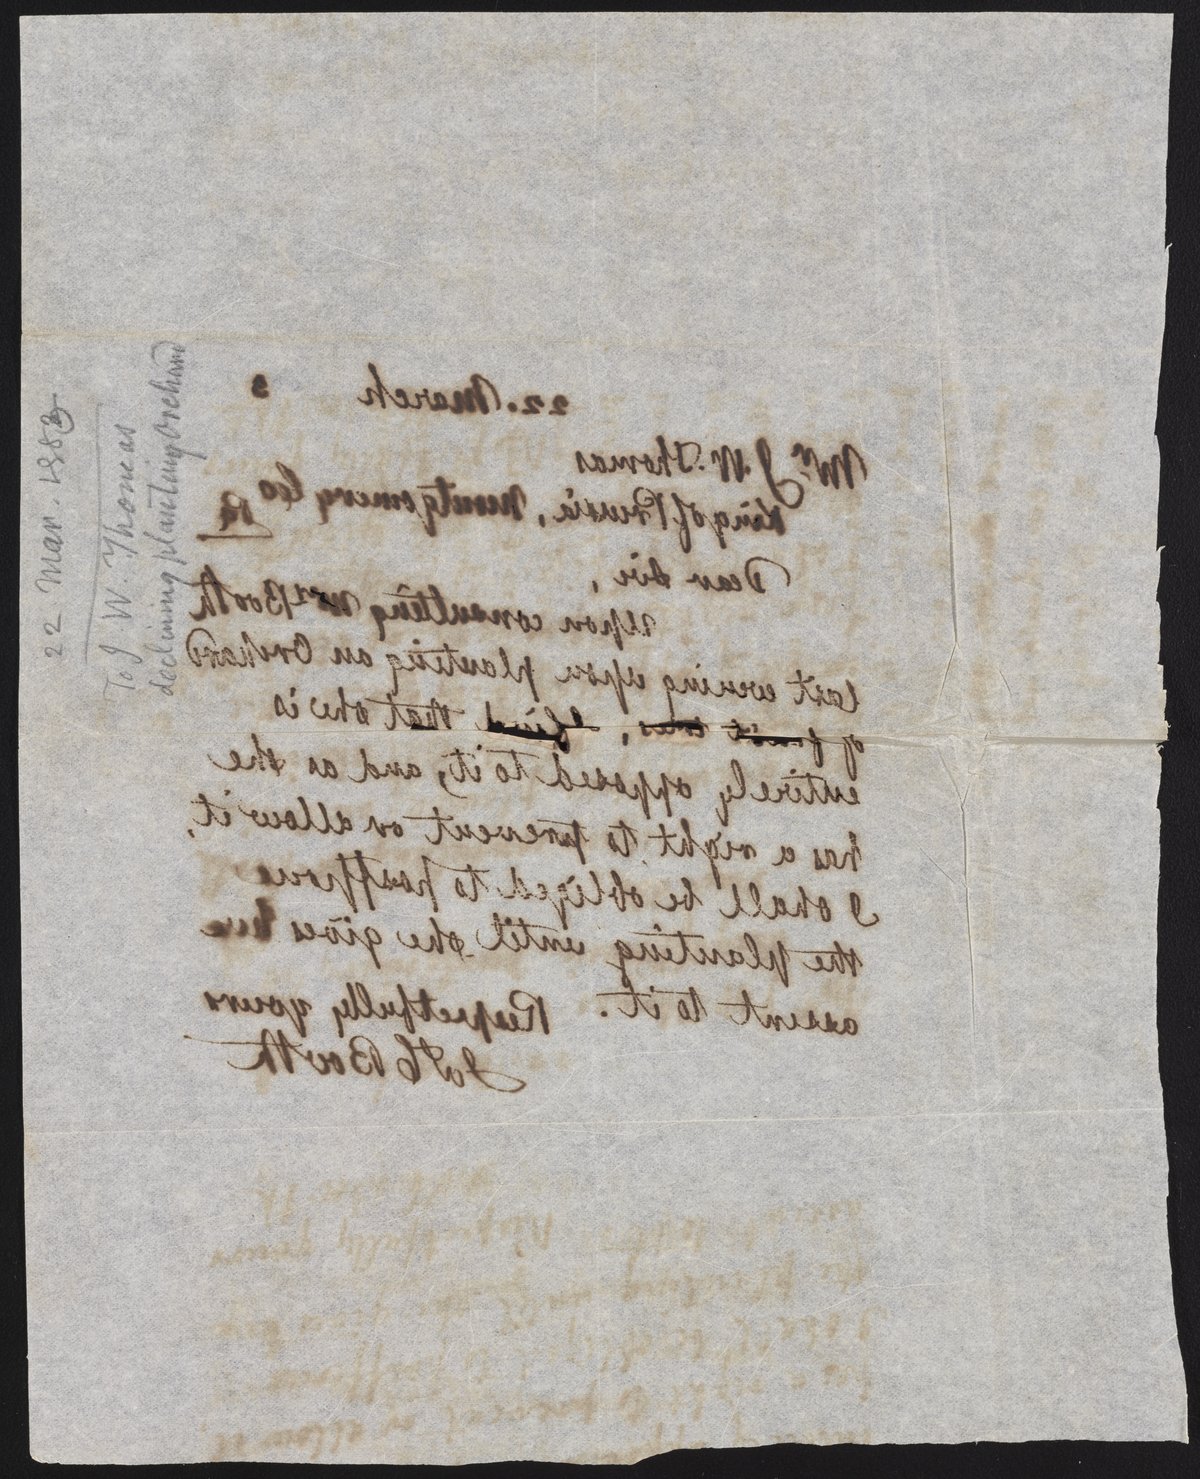 22. March 3
Mr. J. W. Thomas
King of Prussia, Montgomery Co
Pa
Dear Sir,
Upon consulting Mrs Booth
last evening upon planting an Orchard
of fruit trees, I find that she is
entirely opposed to it, and as she
has a right to prevent or allow it,
I shall be obliged to postpone
the planting until she gives her
assent to it. Respectfully yours
J. H. Booth
22 Mar. 1883
To J. W. Thomas
declining planting Orchard